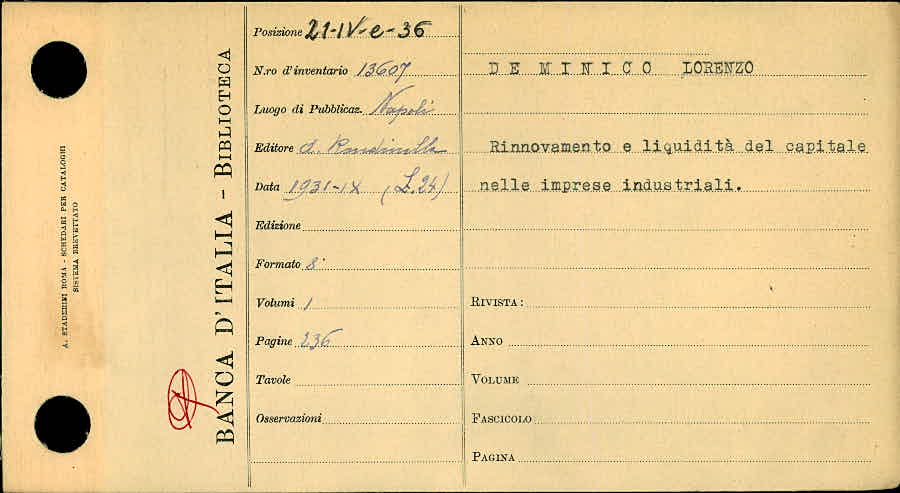 A. STADERINI ROMA - SCHEDARI PER CATALOGHI
SISTEMA BREVETTATO
BANCA D'ITALIA - BIBLIOTECA
Posizione 21-IV-e-36
N.ro d'inventario 13607
Luogo di Pubblicaz. Napoli
Editore A. Rondinella
Data 1931-IX (L. 24)
Edizione
Formato 8°
Volumi 1
Pagine 236
Tavole
Osservazioni
DE MINICO LORENZO
Rinnovamento e liquidità del capitale
nelle imprese industriali.
RIVISTA:
ANNO
VOLUME
FASCICOLO
PAGINA